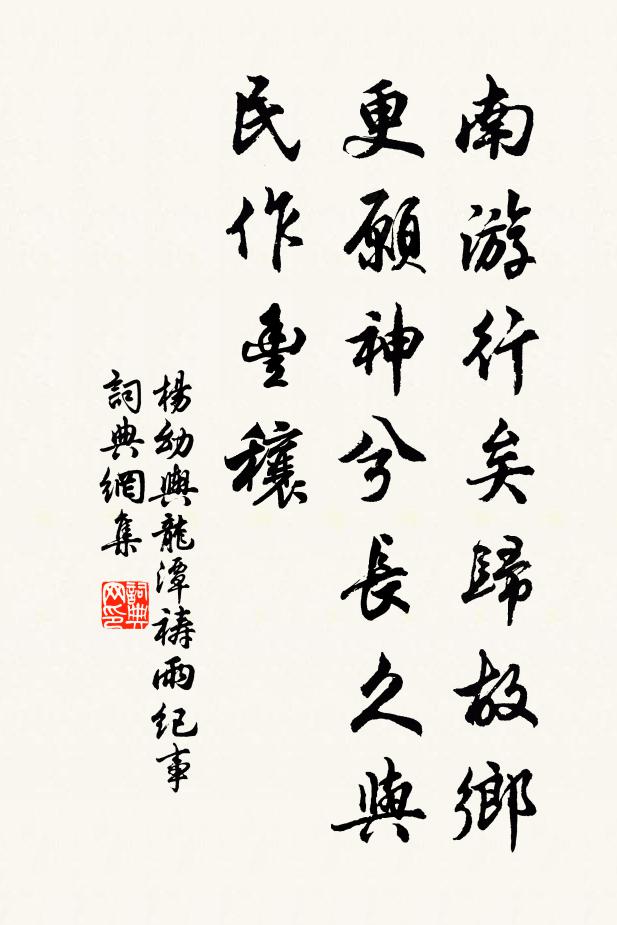 南游行矣歸故鄉
更願神兮長久與
民作豐穰
楊幼輿龍潭禱雨紀事
詞典網集
詞典
网印